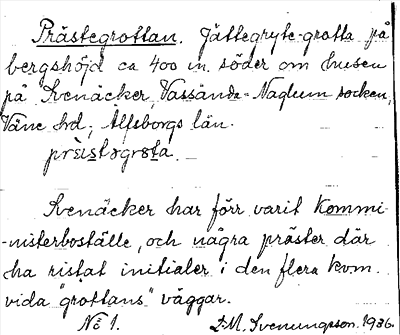 Prästegrottan. Jättegryte-grotta på
bergshöjd ca 400 m. söder om husen
på Svenäcker, Vassända-Naglum socken,
Väne hd, Älfsborgs län.
prästəgròta.
Svenäcker har förr varit kommi-
-nisterboställe, och några präster där
ha ristat initialer i den flera kvm.
vida "grottans" väggar.
No 1. D.M. Svenungsson. 1936.